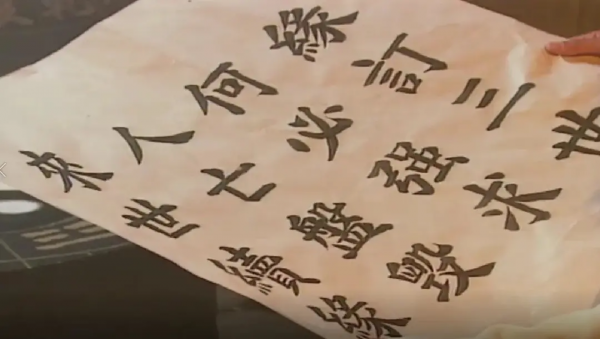 緣訂三世
何必強求
人亡盤毀
來世續緣